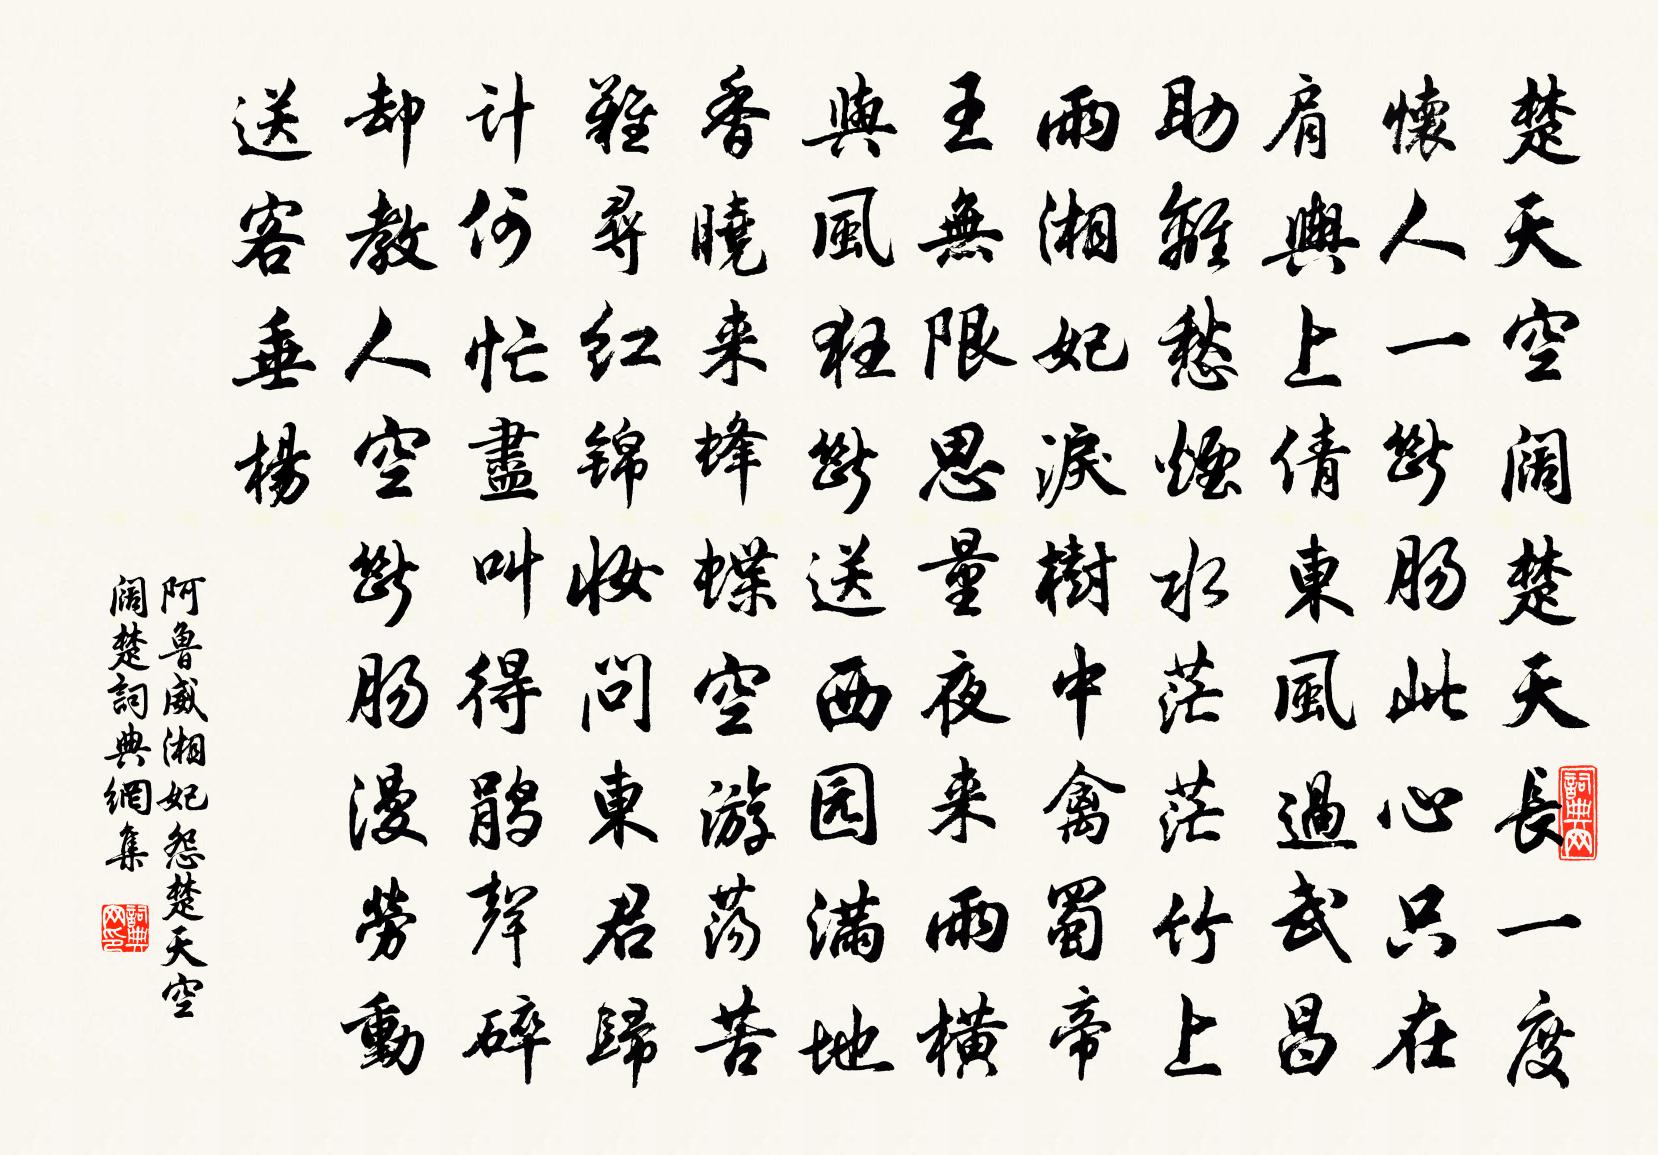 楚天空阔楚天長一度
懷人一斷肠此心只在
肩輿上倩東風過武昌
助離愁煙水茫茫竹上
雨湘妃淚樹中禽蜀帝
王無限思量夜来雨橫
與風狂斷送西园满地
香曉来蜂蝶空游荡苦
難尋红锦妆問東君歸
计何忙盡叫得鹃聲碎
却教人空斷肠漫勞動
送客垂楊
阿魯威湘妃怨楚天空
阔楚詞典網集
詞典网
詞典网印